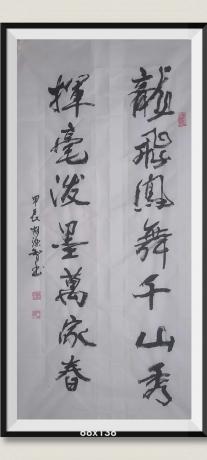 龍飛鳳舞千山秀
揮毫潑墨萬家春
甲辰
68x136